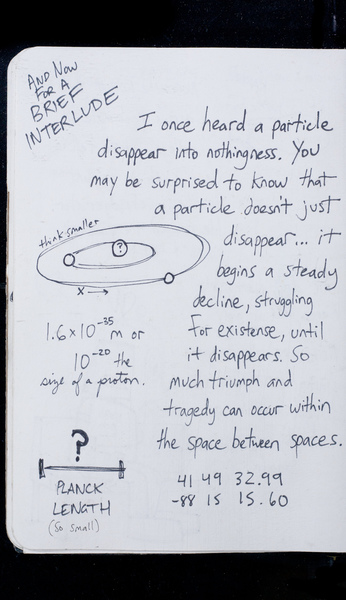 AND NOW
FOR A
BRIEF
INTERLUDE
I once heard a particle
disappear into nothingness. You
may be surprised to know that
a particle doesn't just
disappear... it
begins a steady
decline, struggling
for existense, until
it disappears. So
much triumph and
tragedy can occur within
the space between spaces.
think smaller
?
x →
1.6 x 10⁻³⁵ m or
10⁻²⁰ the
size of a proton.
?
PLANCK
LENGTH
(so small)
41 49 32.99
-88 15 15.60